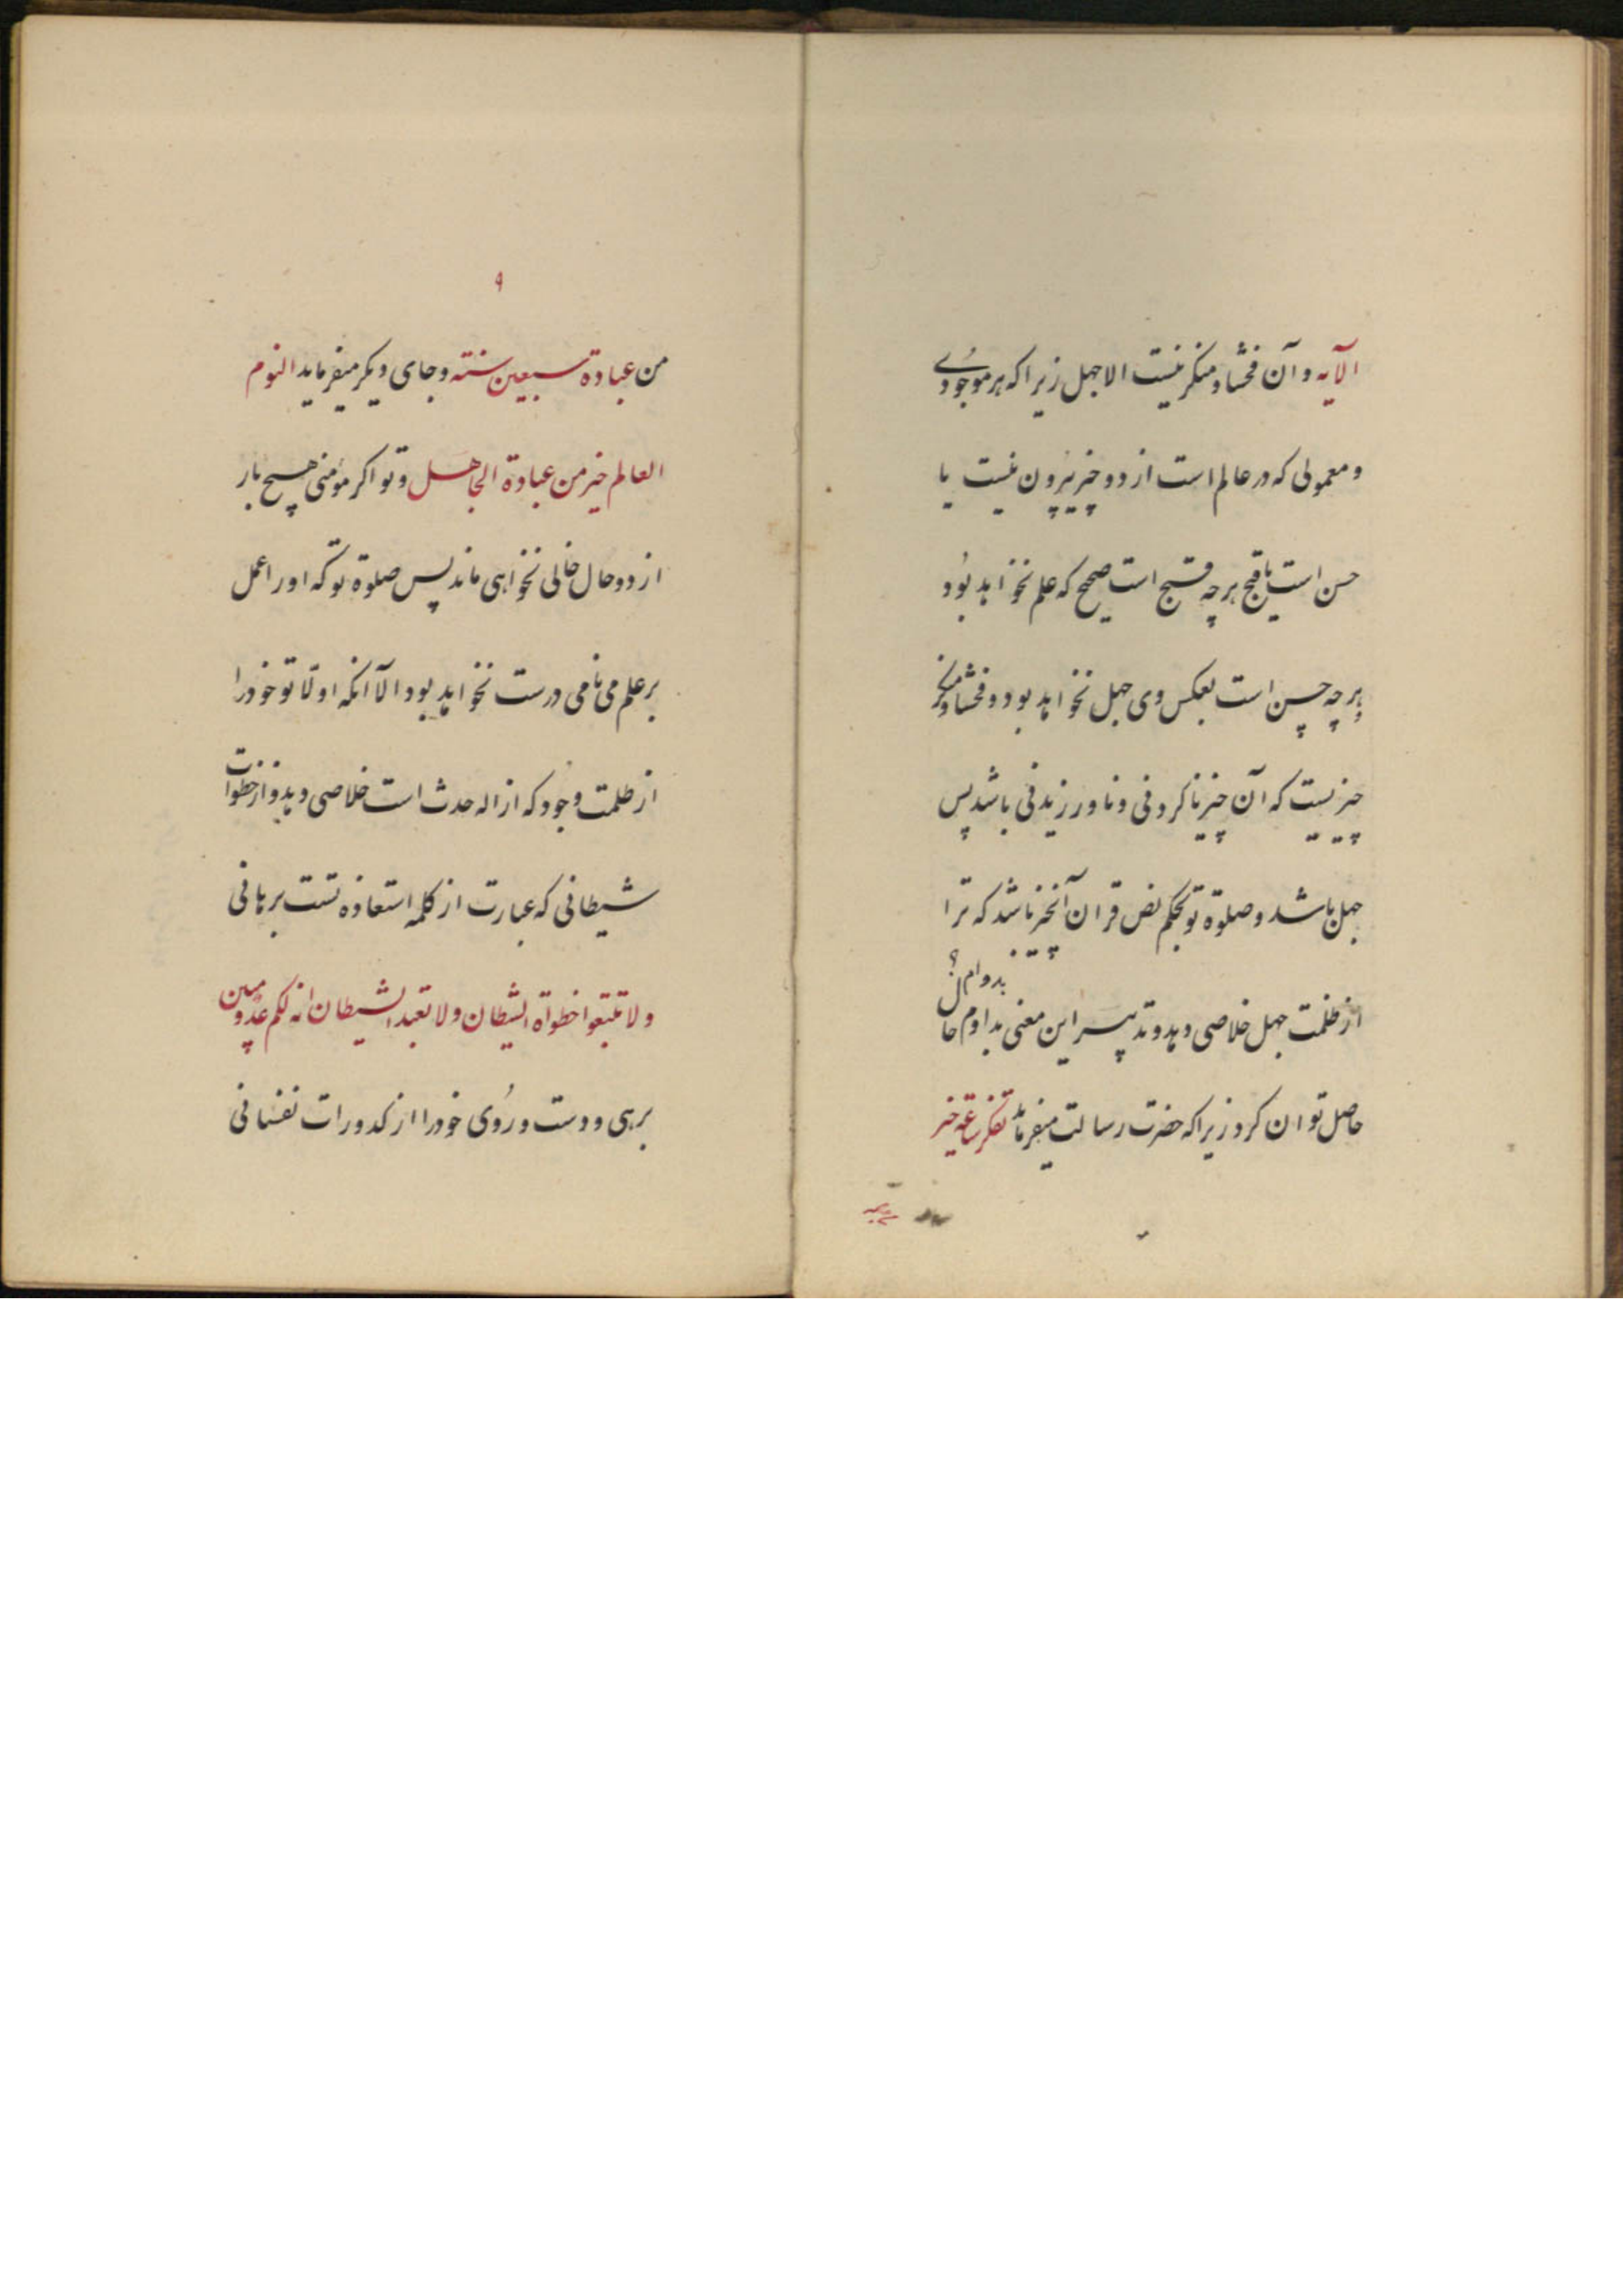 الآیه و آن فحشا و منکر نیست الا جهل زیرا که هر موجودی
و معمولی که در عالم است از دو چیز بیرون نیست یا
حسن است یا قبح هر چه قبیح است صحیح که علم نخواهد بود
و هر چه حسن است بعکس وی جهل نخواهد بود و فحشا و منکر
چیزیست که آن چیز ناکردنی و ناورزیدنی باشد پس
جهل باشد و صلوة تو بحکم نص قران آنچیز باشد که ترا
بدوام؟
از ظلمت جهل خلاصی دهد و تدبیر این معنی بداوم حال
حاصل توان کرد زیرا که حضرت رسالت میفرماید تفکر ساعة خیر
۹
من عبادة سبعین سنته و جای دیکر میفرماید النوم
العالم خیر من عبادة الجاهل و تو اکر مؤمنی هیچ بار
از دو حال خالی نخواهی ماند پس صلوة تو که او را عمل
بر علم می نامی درست نخواهد بود الا آنکه اولا تو خود را
از ظلمت وجود که ازاله حدث است خلاصی دهد و از خطوات
شیطانی که عبارت از کلمه استعاذه تست برهانی
و لا تتبعوا خطواة الشیطان و لا تعبد الشیطان انه لکم عدو مبین
برهی و دست و روی خود را از کدورات نفسانی